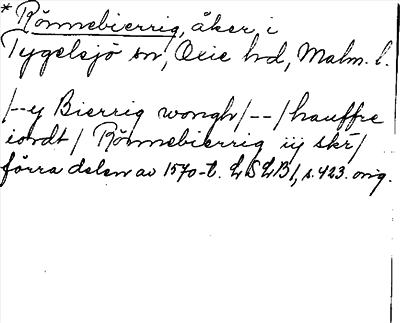 * Rönnebierrig, åker i
Tygelsjö sn, Oxie hd, Malm. l.
/--y Bierrig wongh/--/hauffre
iordt/ Rönnebierrig iij skr/
förra delen av 1570-t. LSLB1, s. 423. orig.